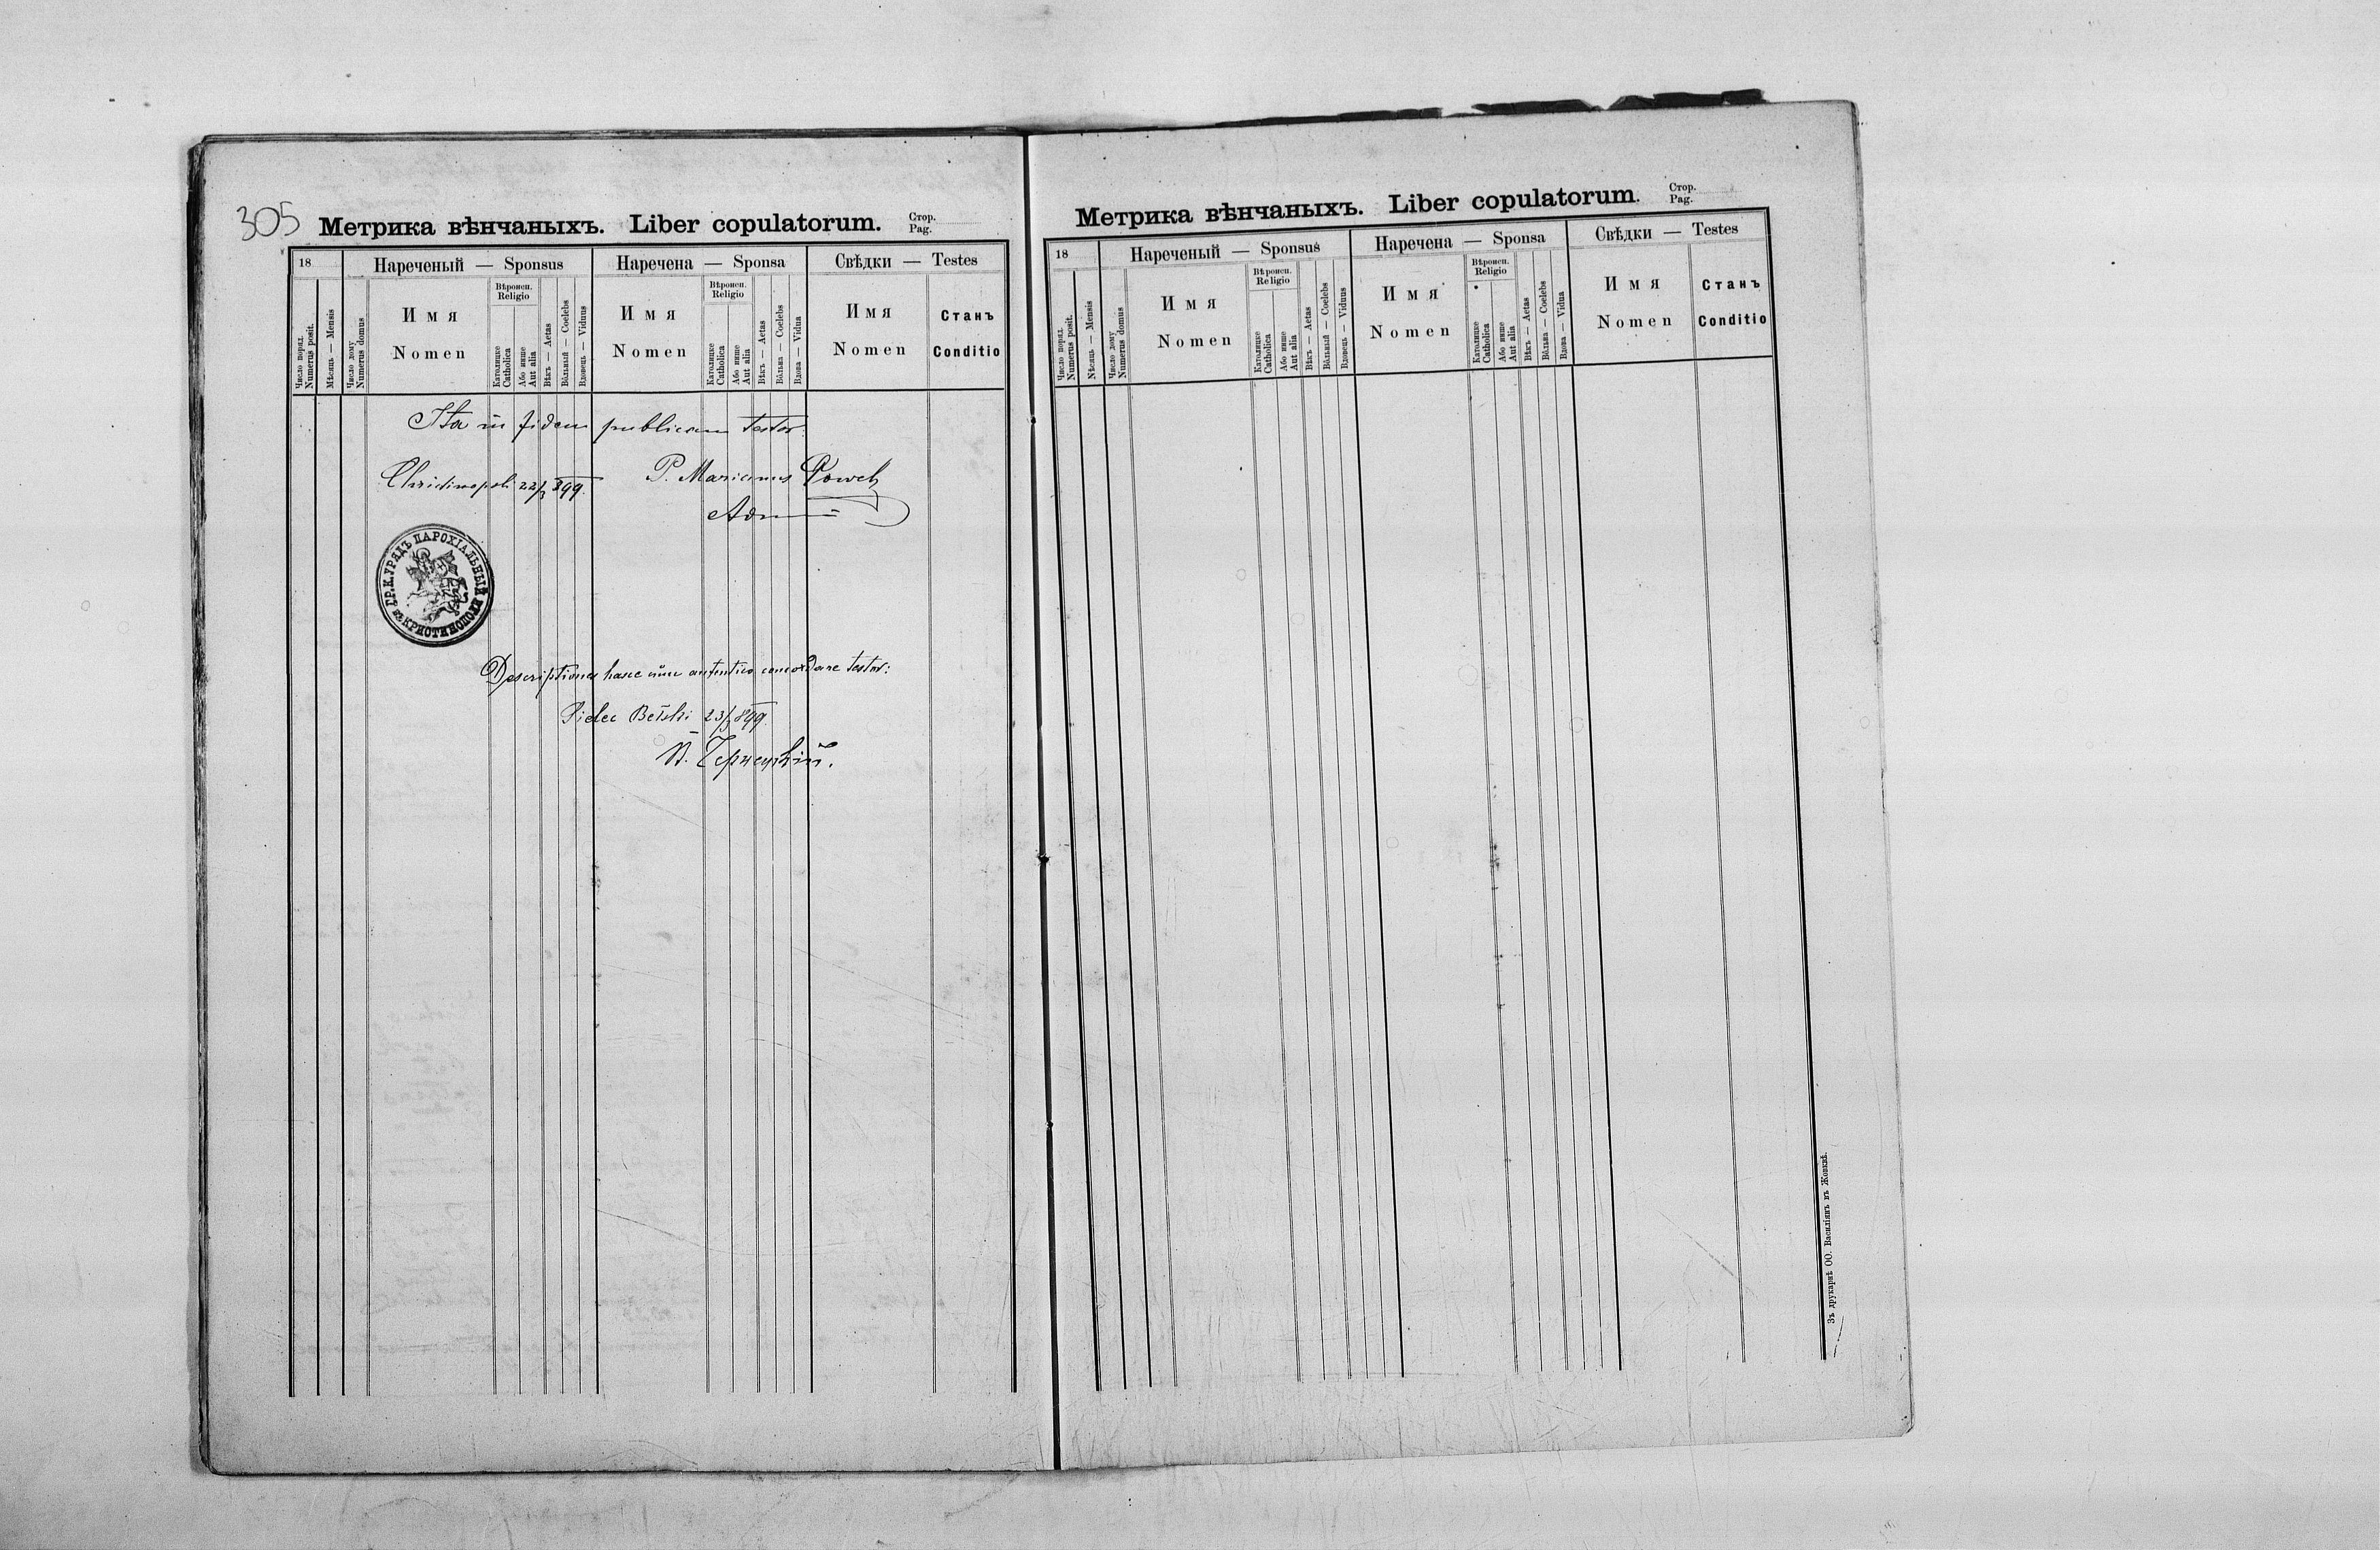 305
Метрика вѣнчаныхъ. Liber copulatorum.
Стор.
Pag.
18
Нареченый — Sponsus
Наречена — Sponsa
Свѣдки — Testes
Число поряд.
Numerus posit.
Мѣсяць — Mensis
Число дому
Numerus domus
Имя
Nomen
Вѣроисп.
Religio
Католицке
Catholica
Або инше
Aut alia
Вѣкъ — Aetas
Вôльный — Coelebs
Вдовець — Viduus
Имя
Nomen
Вѣроисп.
Religio
Католицке
Catholica
Або инше
Aut alia
Вѣкъ — Aetas
Вôльна — Coelebs
Вдова — Vidua
Имя
Nomen
Станъ
Conditio
Ita in fidem publicam testor.
Christinopoli 22/3 899. P. Marianus
Adm
ГР.К.УРЯДЪ ПАРОХІАЛЬНЫЙ
въ КРИСТИНОПОЛИ
Descriptiones hasce cum autentico concordare testor:
Sielec Bełski 23/3 899.
Метрика вѣнчаныхъ. Liber copulatorum.
Стор.
Pag.
18
Нареченый — Sponsus
Наречена — Sponsa
Свѣдки — Testes
Число поряд.
Numerus posit.
Мѣсяць — Mensis
Число дому
Numerus domus
Имя
Nomen
Вѣроисп.
Religio
Католицке
Catholica
Або инше
Aut alia
Вѣкъ — Aetas
Вôльный — Coelebs
Вдовець — Viduus
Имя
Nomen
Вѣроисп.
Religio
Католицке
Catholica
Або инше
Aut alia
Вѣкъ — Aetas
Вôльна — Coelebs
Вдова — Vidua
Имя
Nomen
Станъ
Conditio
Зъ друкарнѣ ОО. Василіянъ въ Жовквѣ.